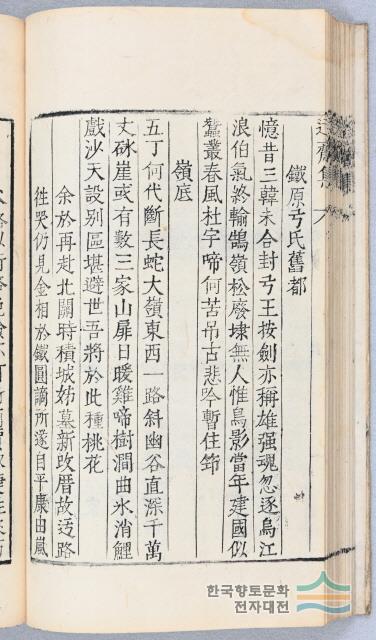 鐵原弓氏舊都
憶昔三韓未合封弓王按劍亦稱雄强魂忽逐烏江
浪伯氣終輸鵠嶺松廢堞無人惟鳥影當年建國似
蠶叢春風杜宇啼何苦吊古悲吟暫住筇
嶺底
五丁何代斷長蛇大嶺東西一路斜幽谷直深千萬
丈砯崖或有數三家山扉日暖雞啼樹澗曲氷消鯉
戲沙天設别區堪避世吾將於此種桃花
余於再赴北關時積城姊墓新改厝故迂路
徃哭仍見金相於鐵圓謫所遂自平康由嵐
한국향토문화
전자대전